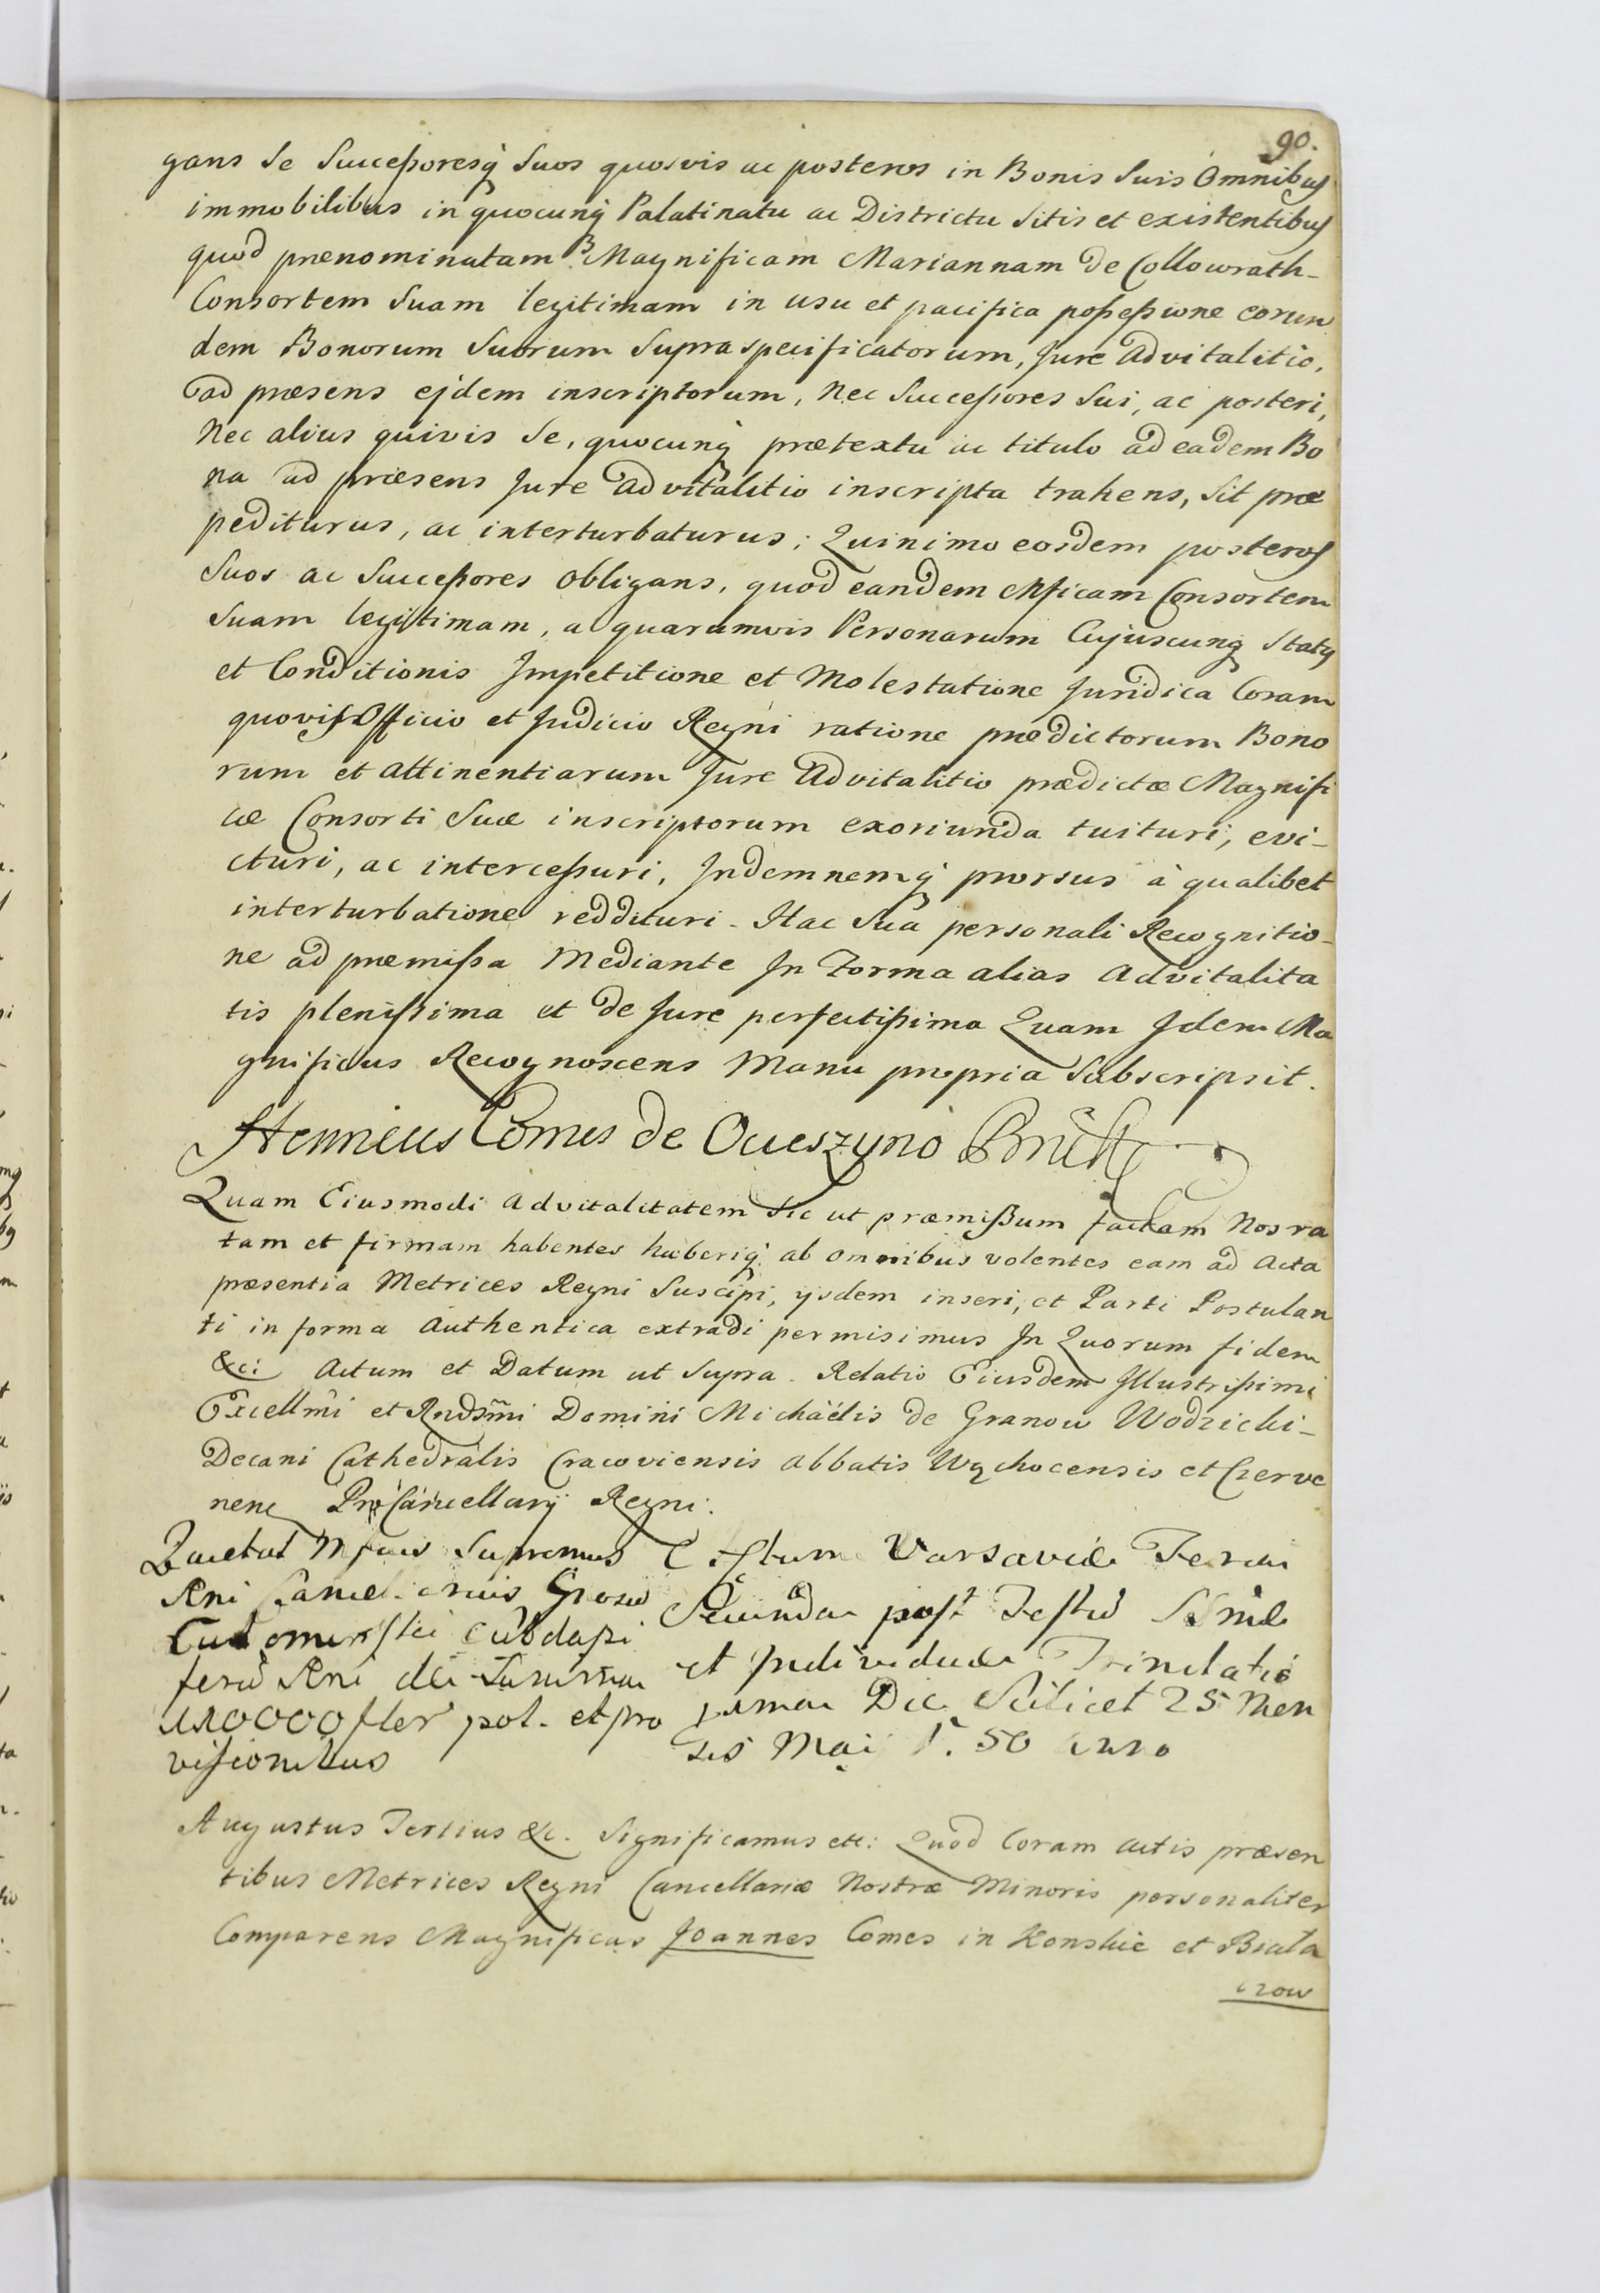 90.
gans Se Successoresq́ Suos quosvis ac posteros in Bonis Suis Omnibus
immobilibus in quocunq́ Palatinatu ac Districtu Sitis et existentibus
quod prænominatam Magnificam Mariannam de Collowrath-
Consortem Suam legitimam in usu et pacifica possessione eorun
dem Bonorum Suorum Supraspecificatorum, Jure Advitalitio,
ad præsens ejdem inscriptorum, Nec Successores Sui, ac posteri,
Nec alius quivis Se, quocunq́ prætextu ac titulo ad eadem Bo
na ad præsens Jure Advitalitio inscripta trahens, Sit præ
pediturus, ac interturbaturus; Quinimo eosdem posteros
Suos ac Successores obligans, quod eandem Mficam Consortem
Suam legittimam, a quarumvis Personarum Cujuscunq Statq
et Conditionis Impetitione et Molestatione Juridica Coram
quovis Officio et Judicio Regni ratione prædictorum Bono
rum et attinentiarum Jure Advitalitio prædictæ Magnifi
cæ Consorti Suæ inscriptorum exoriunda tuituri, evi-
cturi, ac intercessuri, Indemnemq́ prorsus à qualibet
interturbatione reddituri. Hac Sua personali Recognitio-
ne ad præmissa Mediante In Forma alias Advitalita
tis plenissima et de Jure perfectissima Quam Idem Ma
gnificus Recognoscens Manu propria Subscripsit.
Henricus Comes de Ocieszyno Brühl
Quam Eiusmodi Advitalitatem Sic ut præmissum factam Nos ra
tam et firmam habentes haberiq́ ab omnibus volentes eam ad Acta
præsentia Metrices Regni Suscipi, ijsdem inseri, et Parti Postulan
ti in forma Authentica extradi permisimus In Quorum fidem
&c: Actum et Datum ut Supra. Relatio Eiusdem Illustrissimi
Excellmi et Rndsmi Domini Michaëlis de Granow Wodzicki-
Decani Cathedralis Cracoviensis Abbatis Wąchocensis et Czerve
nenę ProCancellarij Regni.
Quietat Supremus
Rni Cancel.
Subdapi
feru Rni de Summa
pol. et pro
visionibus
Actum Varsaviæ Feria
Secunda post Festū
et Individuæ Trinitatis
Die Scilicet 25 Men
sis Maii
Augustus Tertius &c. Significamus etc: Quod Coram Actis præsen
tibus Metrices Regni Cancellariæ Nostræ Minoris personaliter
Comparens Magnificus Joannes Comes in Konskie et Biała
czow